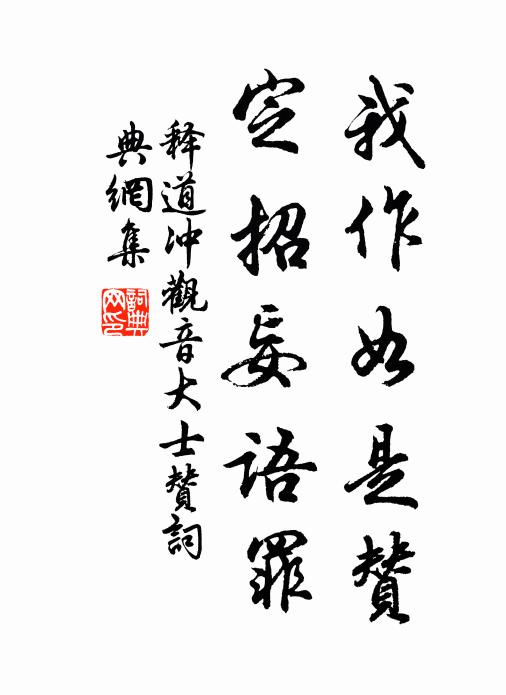 我作如是贊
定招妄語罪
释道沖觀音大士贊詞
典網集
詞典
网印